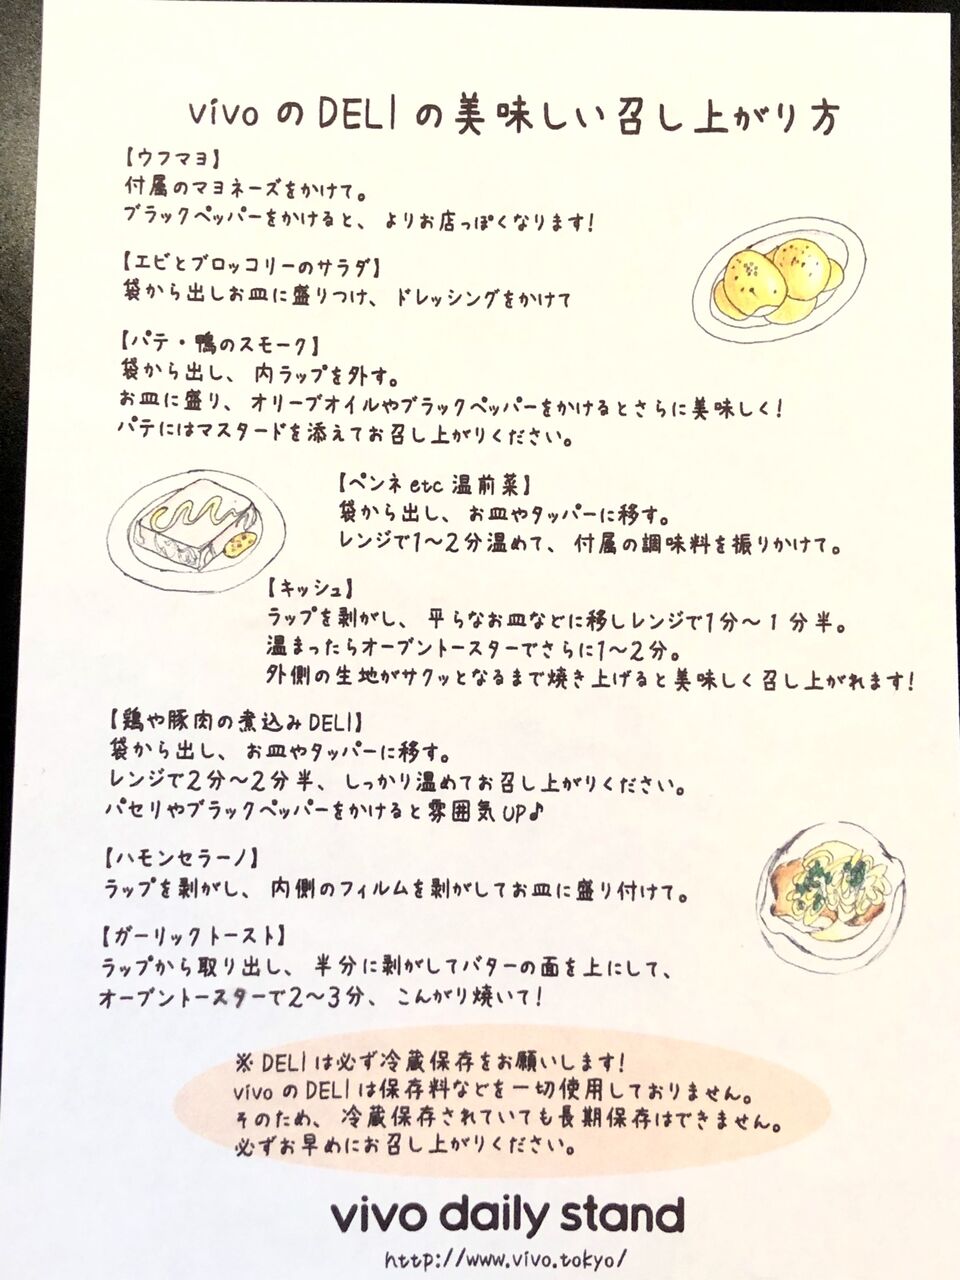 vivoのDELIの美味しい召し上がり方
【ウフマヨ】
付属のマヨネーズをかけて。
ブラックペッパーをかけると、よりお店っぽくなります!
【エビとブロッコリーのサラダ】
袋から出しお皿に盛りつけ、ドレッシングをかけて
【パテ・鴨のスモーク】
袋から出し、内ラップを外す。
お皿に盛り、オリーブオイルやブラックペッパーをかけるとさらに美味しく!
パテにはマスタードを添えてお召し上がりください。
【ペンネetc温前菜】
袋から出し、お皿やタッパーに移す。
レンジで1〜2分温めて、付属の調味料を振りかけて。
【キッシュ】
ラップを剥がし、平らなお皿などに移しレンジで1分〜1分半。
温まったらオーブントースターでさらに1〜2分。
外側の生地がサクッとなるまで焼き上げると美味しく召し上がれます!
【鶏や豚肉の煮込みDELI】
袋から出し、お皿やタッパーに移す。
レンジで2分〜2分半、しっかり温めてお召し上がりください。
パセリやブラックペッパーをかけると雰囲気UP♪
【ハモンセラーノ】
ラップを剥がし、内側のフィルムを剥がしてお皿に盛り付けて。
【ガーリックトースト】
ラップから取り出し、半分に剥がしてバターの面を上にして、
オーブントースターで2〜3分、こんがり焼いて!
※DELIは必ず冷蔵保存をお願いします!
vivoのDELIは保存料などを一切使用しておりません。
そのため、冷蔵保存されていても長期保存はできません。
必ずお早めにお召し上がりください。
vivo daily stand
http://www.vivo.tokyo/